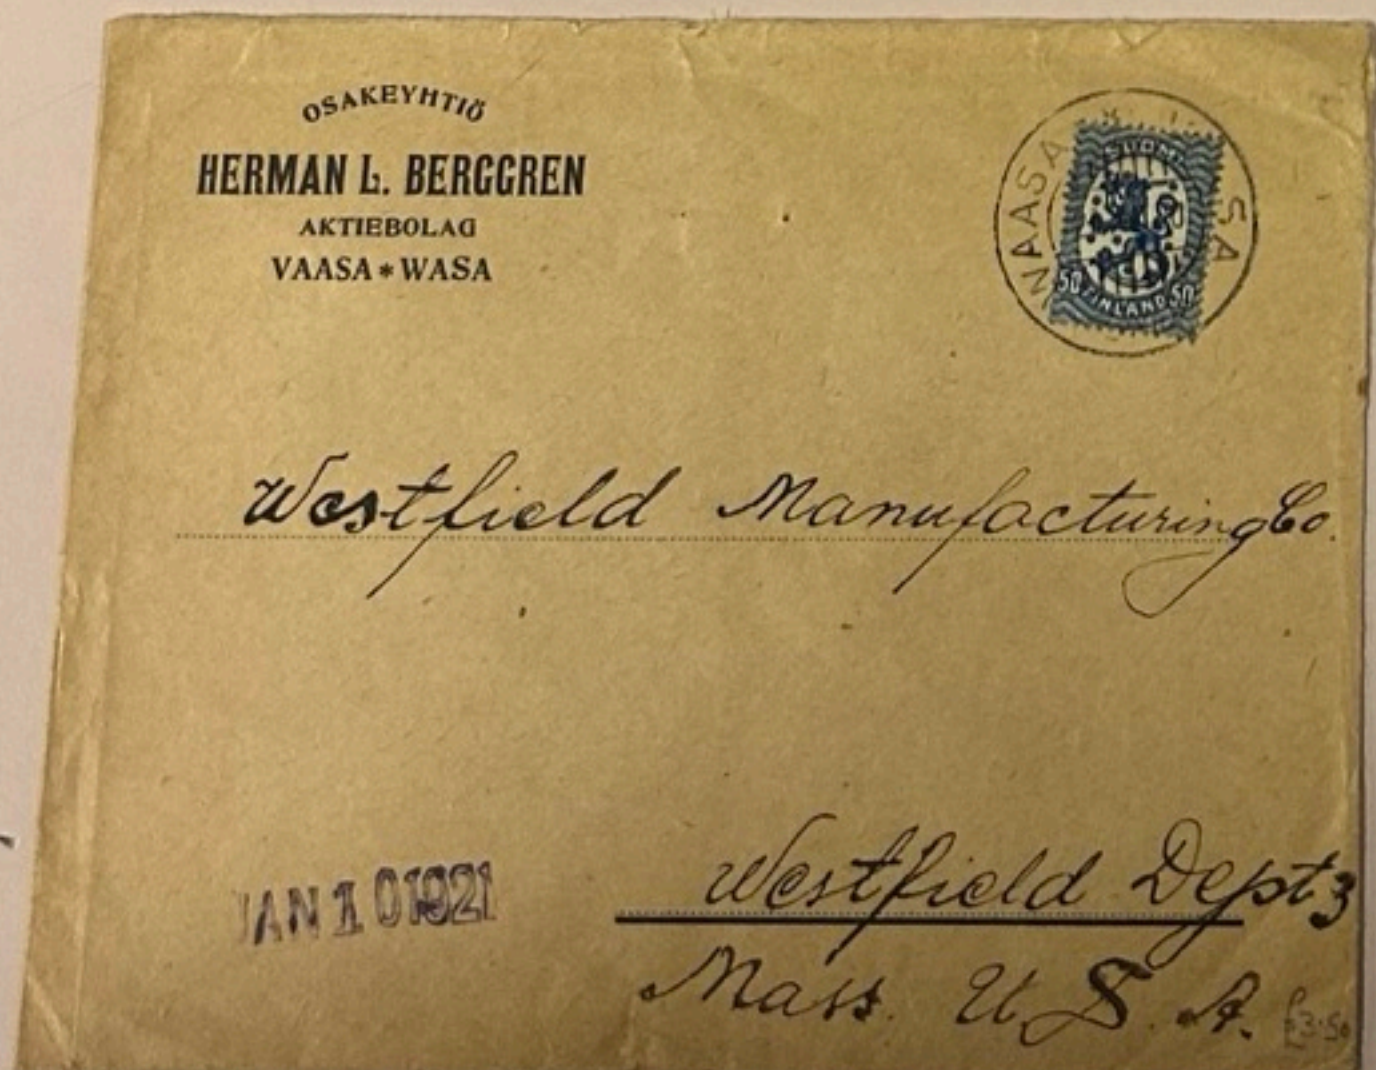 OSAKEYHTIÖ
HERMAN L. BERGGREN
AKTIEBOLAG
VAASA * WASA
VAASA
SA
SUOMI
50 FINLAND 50
Westfield Manufacturing Co.
JAN 10 1921
Westfield Dept 3
Mass. U. S. A.
£3.50